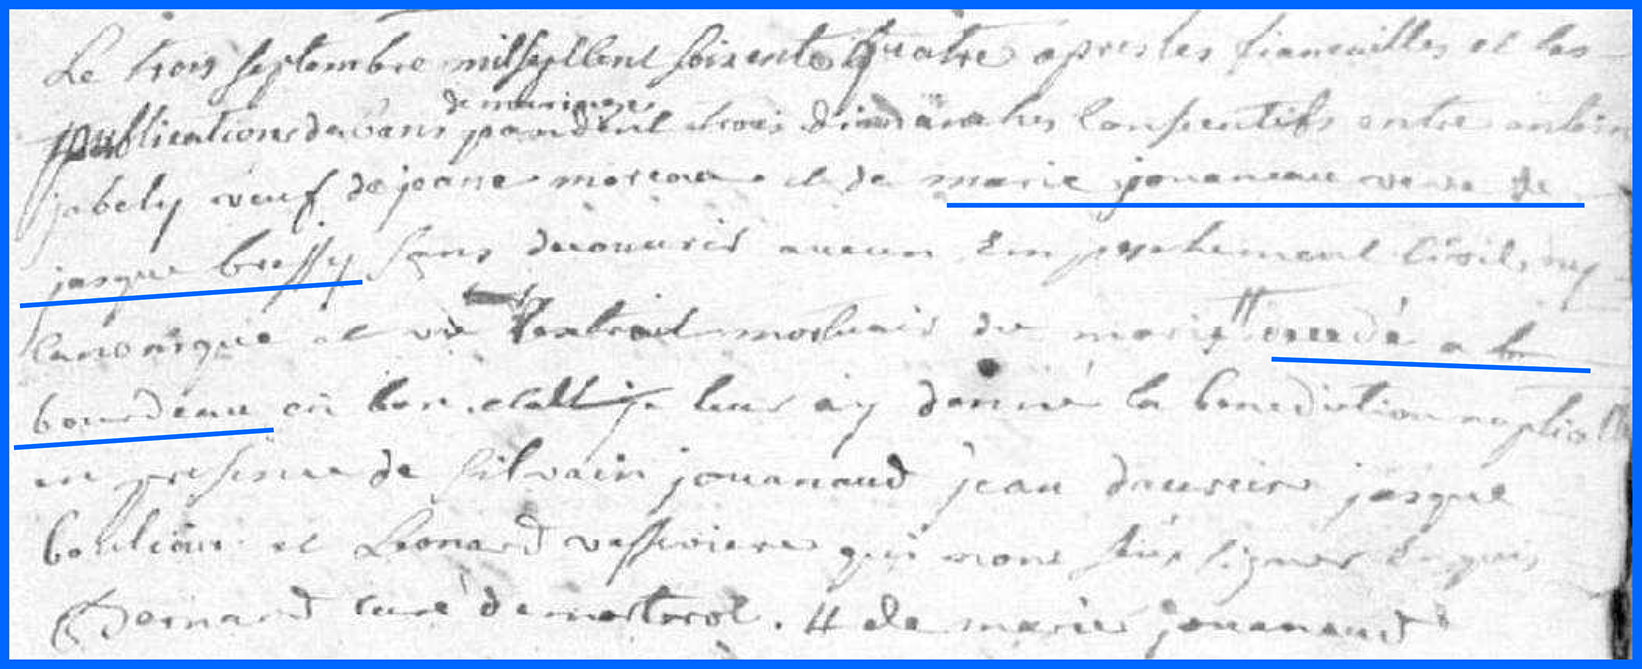 Le trois septembre mil sept cent soixente quatre apres les fiancailles et les
publications davans de mariage pandent trois dimanches consecutifs entre antoin
jabely veuf de jeane moreau et de marie jouaneau veuve de
jasque bressy sans decouvrir aucun empeschement civil, ny
canonique et vu l'extrait mortuaire du mary # decedé a
bourdeau en bon je leur ay donné la benediction nuptialle
en presence de silvain jouanaud jean jasque
et Leonard vassiviere qui nont signer
Bernard curé de mortrol. # de marie jouanaud